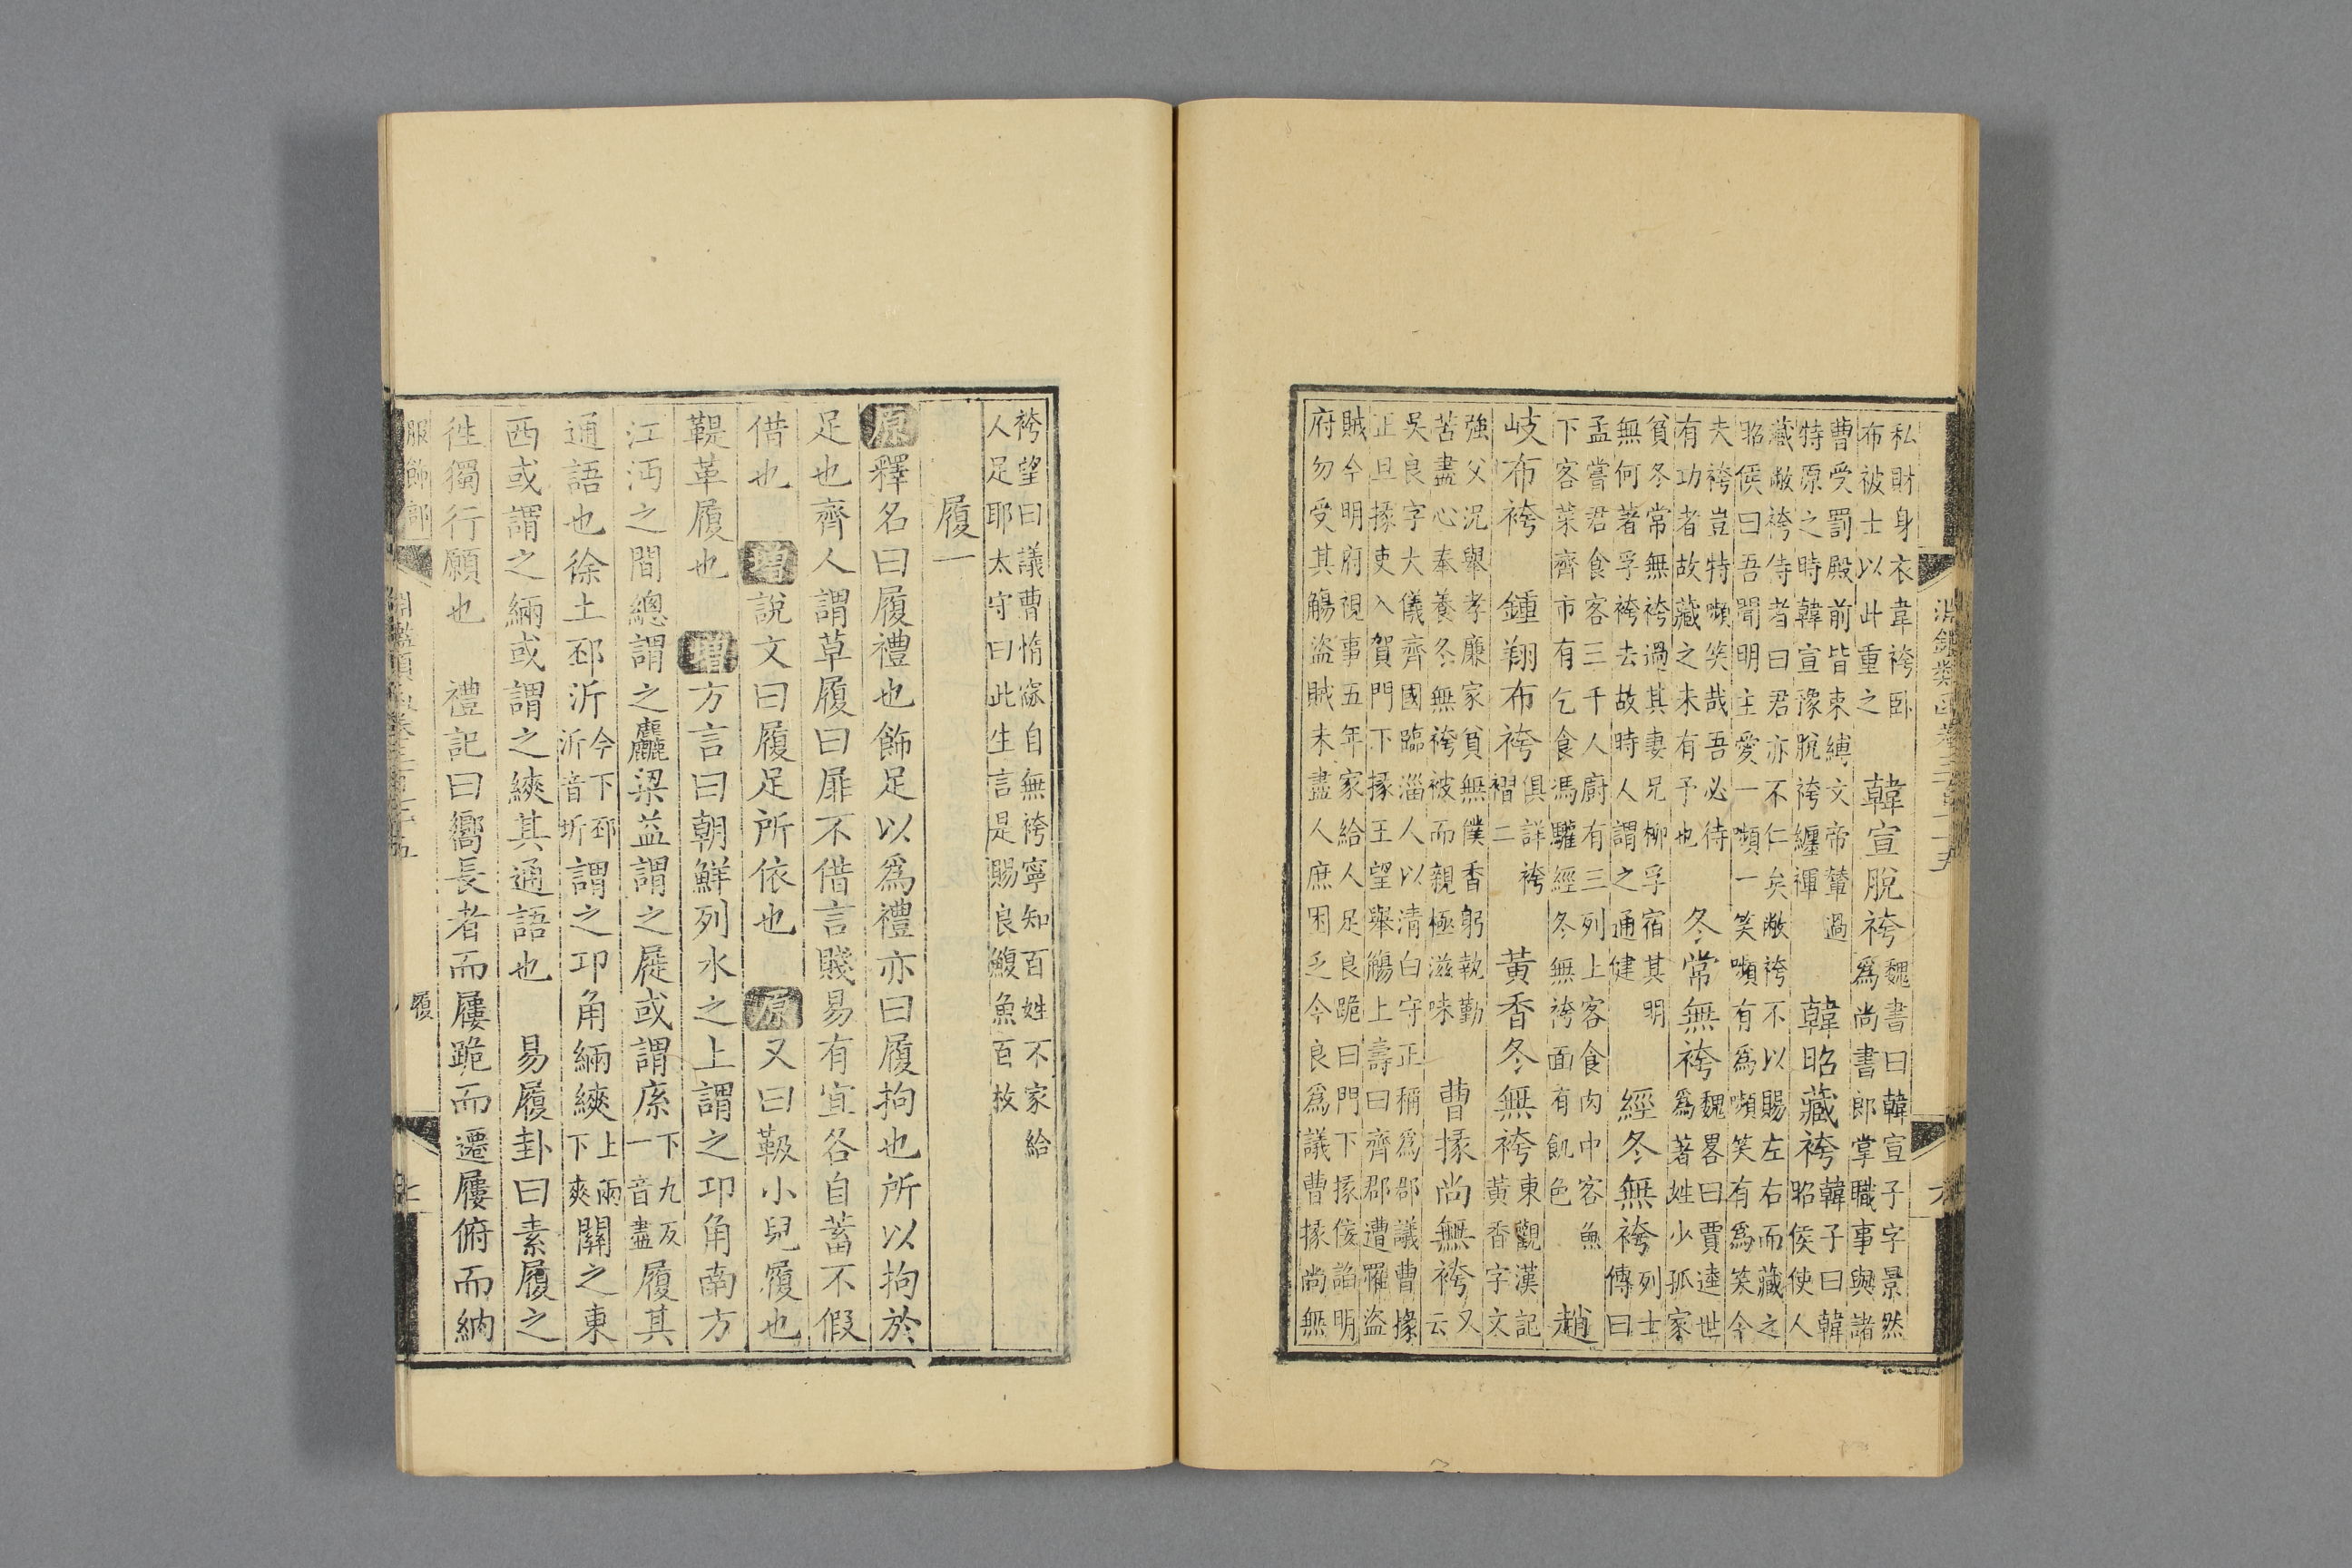 淵鑑類函卷三百七十五
六
私財身衣韋袴卧
布被士以此重之
韓宣脫袴
魏書曰韓宣子字景然
爲尚書郎掌職事與諸
曹受罰殿前皆束縛文帝輦過
特原之時韓宣豫脫袴纏褌
韓昭藏袴
韓子曰韓
昭侯使人
藏敝袴侍者曰君亦不仁矣敝袴不以賜左右而藏之
昭侯曰吾聞明主愛一嚬一笑嚬有爲嚬笑有爲笑今
夫袴豈特嚬笑哉吾必待
有功者故藏之未有予也
冬常無袴
魏畧曰賈逵世
爲著姓少孤家
貧冬常無袴過其妻兄柳孚宿其明
無何著孚袴去故時人謂之通健
經冬無袴
列士
傳曰
孟嘗君食客三千人廚有三列上客食肉中客魚
下客菜齊市有乞食馮驩經冬無袴面有飢色
趙
岐布袴 鍾翔布袴
俱詳袴
褶二
黃香冬無袴
東觀漢記
黃香字文
強父況舉孝廉家貧無僕香躬執勤
苦盡心奉養冬無袴被而親極滋味
曹掾尚無袴
又
云
吳良字大儀齊國臨淄人以清白守正稱爲郡議曹掾
正旦掾吏入賀門下掾王望舉觴上壽曰齊郡遭罹盜
賊今明府視事五年家給人足良跪曰門下掾佞諂明
府勿受其觴盜賊未盡人庶困乏今良爲議曹掾尚無
袴望曰議曹惰窳自無袴寧知百姓不家給
人足耶太守曰此生言是賜良鰒魚百枚
履一
原釋名曰履禮也飾足以爲禮亦曰履拘也所以拘於
足也齊人謂草履曰屝不借言賤易有宜各自蓄不假
借也 增說文曰履足所依也 原又曰靸小兒履也
鞮革履也 增方言曰朝鮮列水之上謂之卭角南方
江沔之間總謂之麤梁益謂之屣或謂㡆
下九反
一音畫
履其
通語也徐土邳沂
今下邳
沂音圻
謂之卭角緉緛
上兩
下爽
關之東
西或謂之緉或謂之緛其通語也 易履卦曰素履之
徃獨行願也 禮記曰嚮長者而屨跪而遷屨俯而納
服飾部
淵鑑類函卷三百七十五
履一
七